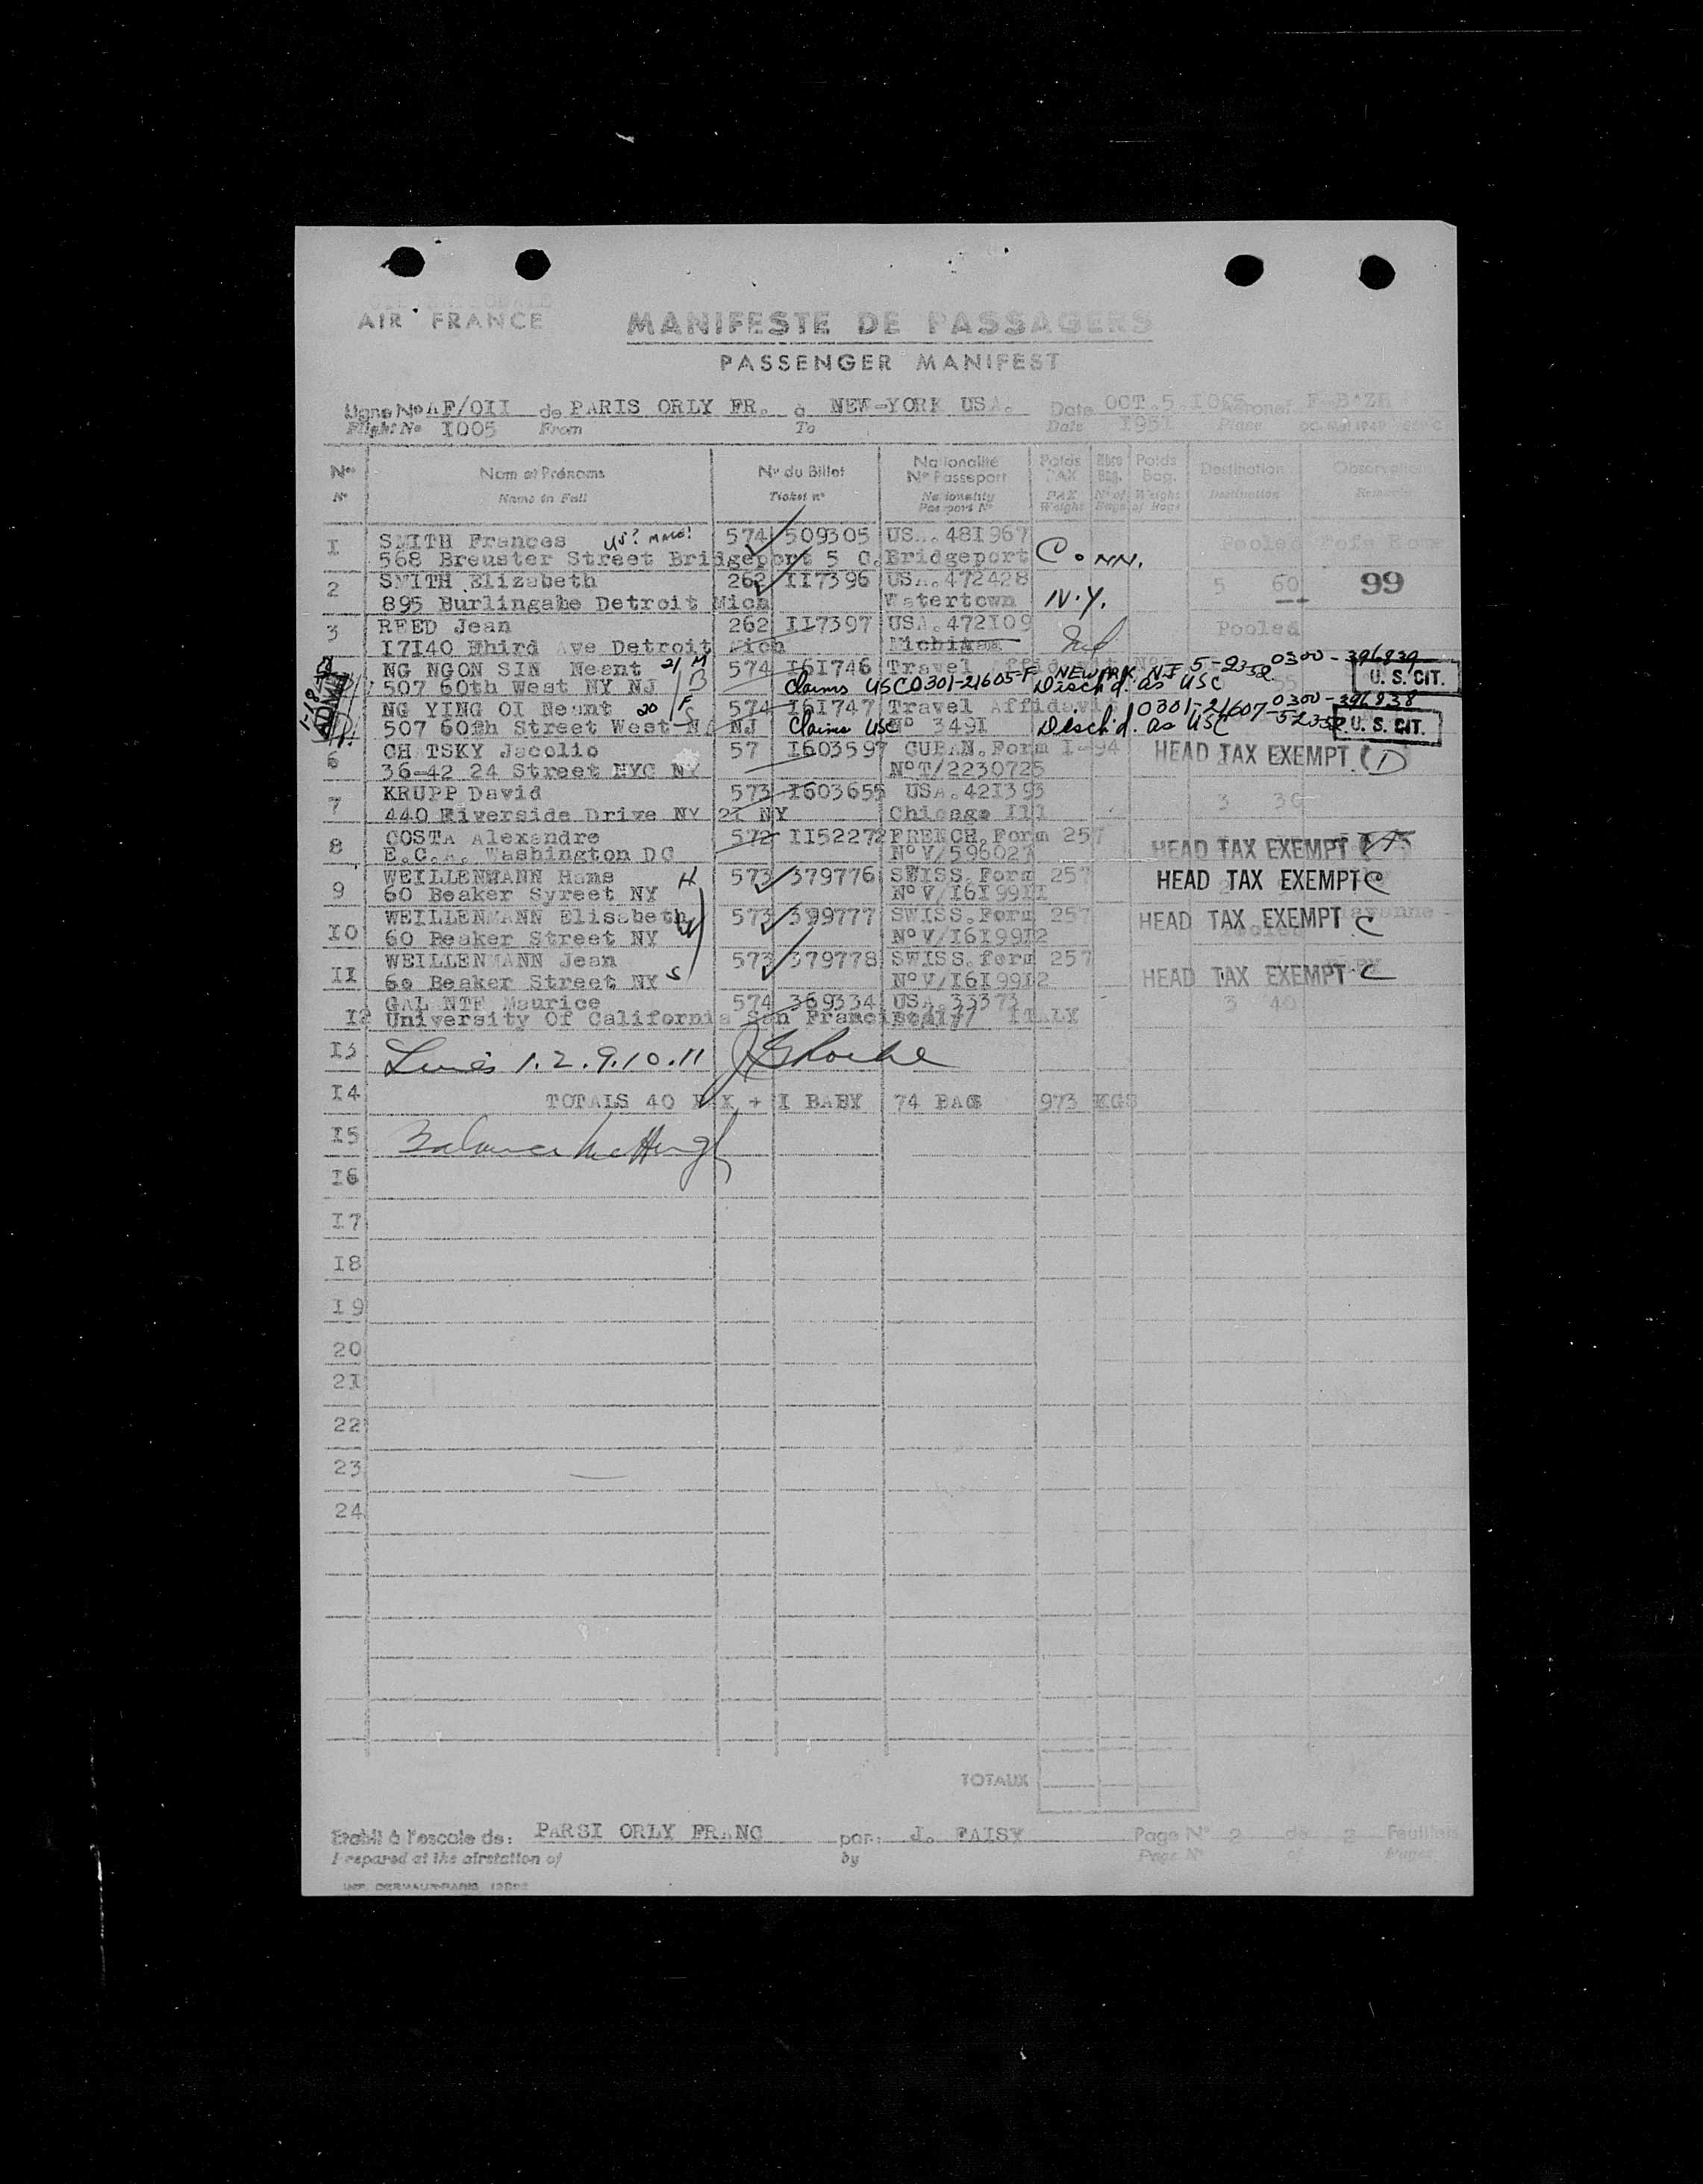 AIR FRANCE
MANIFESTE DE PASSAGERS
PASSENGER MANIFEST
Ligne No AF/OII de PARIS ORLY FR. à NEW-YORK USA. Date OCT.5
Flight No I005 From To Date I951
No Nom et Prénoms No du Billet Nationalité No Passeport Poids PAX Nbre Bag. Poids Bag. Destination Observations
No Name in Full Ticket no Nationality Passport No PAX Weight No of Bags Weight of Bags Destination Remarks
I SMITH Frances US? MALE! 574 509305 USA.481967 Pooled
568 Breuster Street Bridgeport 5 C. Bridgeport CONN.
2 SMITH Elizabeth 262 II7396 USA.472428 5 60 99
895 Burlingame Detroit Mich Watertown N.Y.
3 REED Jean 262 II7397 USA.472109 Pooled
I7I40 Hhird Ave Detroit Mich Michigan
NG NGON SIN Neant 21 M 574 I61746 Travel Affidavit NEWARK NJ 5-23-52 0300-396839
507 60th West NY NJ B Claims USC 0301-21605-F Disch'd. as USC U. S. CIT.
ADMIT
NG YING OI Neant 20 F 574 I61747 Travel Affidavit 0301-21607 0300-396838
507 60th Street West N NJ Claims USC No 349I Desch'd. as USC 5-23-52 U. S. CIT.
6 CHATSKY Jacolio 57 I603597 CUBAN.Form I-94 HEAD TAX EXEMPT (D)
36-42 24 Street NYC NY No T/2230725
7 KRUPP David 573 I603655 USA.421393 3 30
440 Riverside Drive NY 2I NY Chicago Ill
8 COSTA Alexandre 572 II52272 FRENCH.Form 257 HEAD TAX EXEMPT
E.C.A. Washington DC No V/596027
9 WEILLENMANN Hams H 573 379776 SWISS.Form 257 HEAD TAX EXEMPT C
60 Beaker Syreet NY No V/I6I99II
I0 WEILLENMANN Elisabeth W 573 399777 SWISS.Form 257 HEAD TAX EXEMPT C
60 Beaker Street NY No V/I6I99I2
II WEILLENMANN Jean S 573 379778 SWISS.form 257 HEAD TAX EXEMPT C
60 Beaker Street NY No V/I6I99I2
GALANTE Maurice 574 369334 USA.33373 3 40
I2 University Of California San Francisco ITALY
I3 Lines 1.2.9.10.11
I4 TOTALS 40 PAX + I BABY 74 BAG 973 KGS
I5 Balance McHugh
I6
I7
I8
I9
20
21
22
23
24
TOTAUX
Etabli à l'escale de: PARSI ORLY FRANC par: J. FAISY Page No 2 de 2 Feuillets
Prepared at the airstation of by Page No of Pages